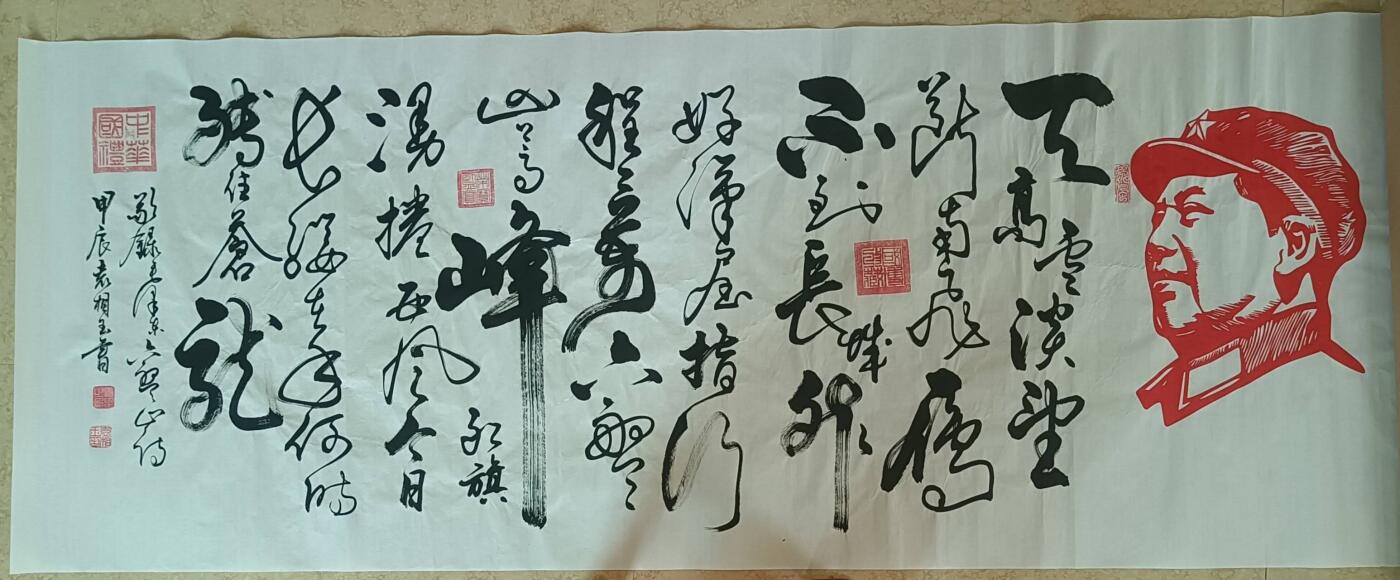 天高雲淡望
斷南飛雁
不到長城非
好漢屈指行
程二萬六盤
山上高峰紅旗
漫捲西風今日
長纓在手何時
縛住蒼龍
敬錄毛澤東六盤山詩
甲辰袁相玉書
中華國禮